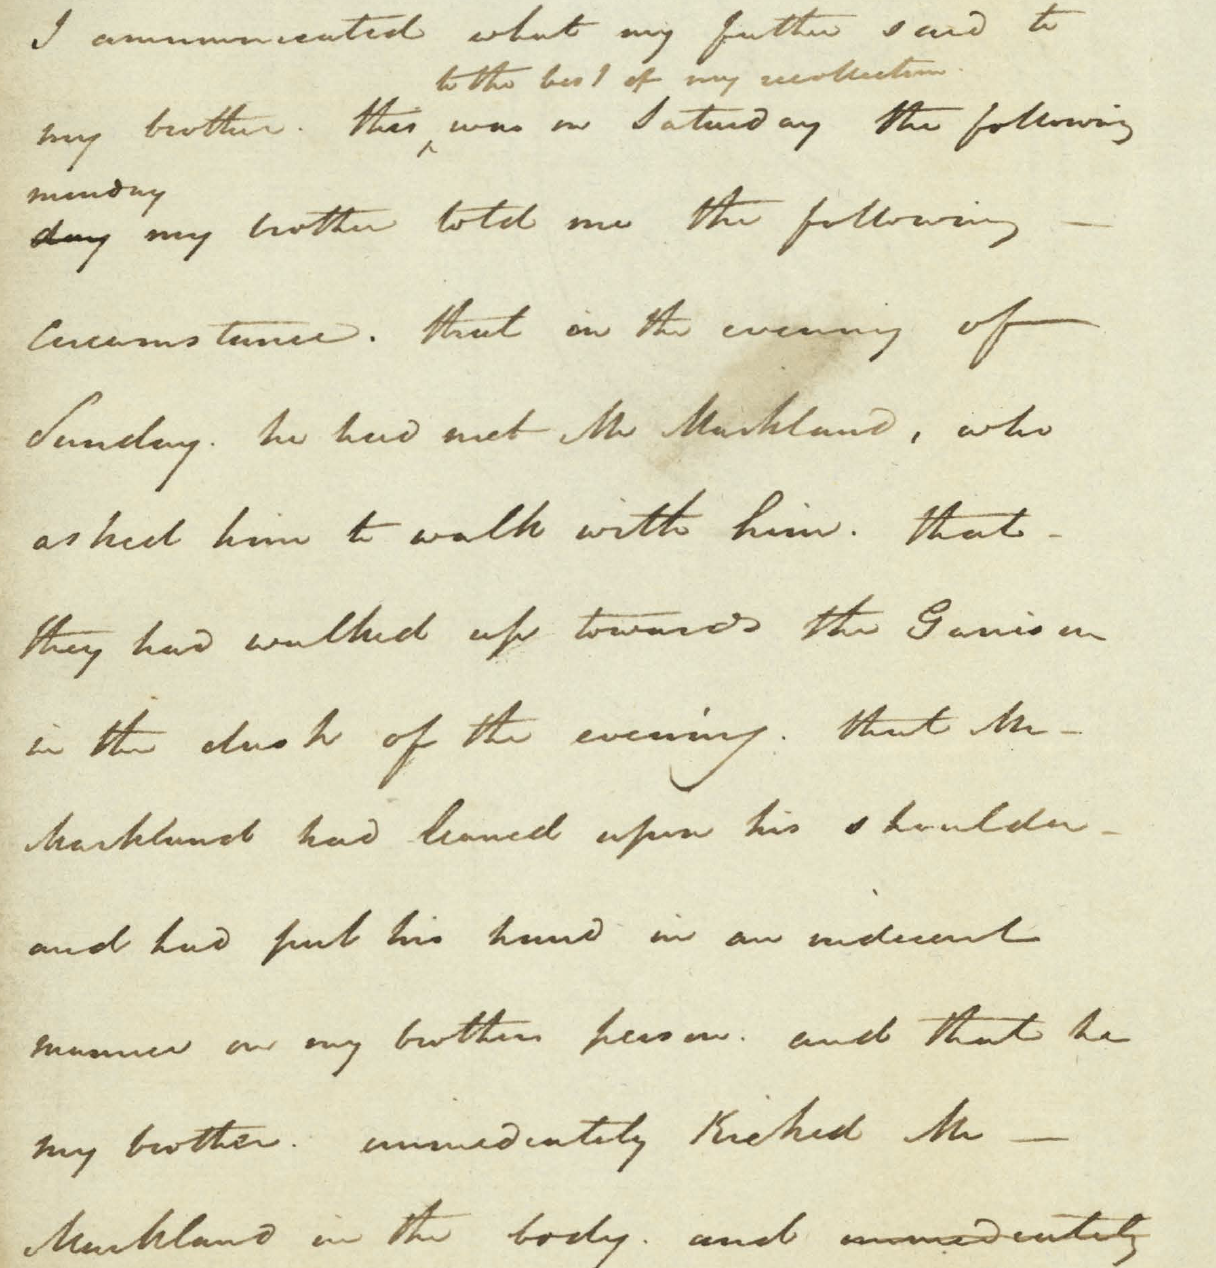 I communicated what my father said to
to the best of my recollection.
my brother. this ‸ was on Saturday the following
monday
~~day~~ my brother told me the following —
Circumstance. that on the evening of
Sunday. he had met Mr Markland, who
asked him to walk with him. that -
they had walked up towards the Garrison
in the dusk of the evening. that Mr -
Markland had leaned upon his shoulder -
and had put his hand in an indecent
manner on my brothers person. and that he
my brother. immediately Kicked Mr —
Markland in the body. and ~~immediately~~